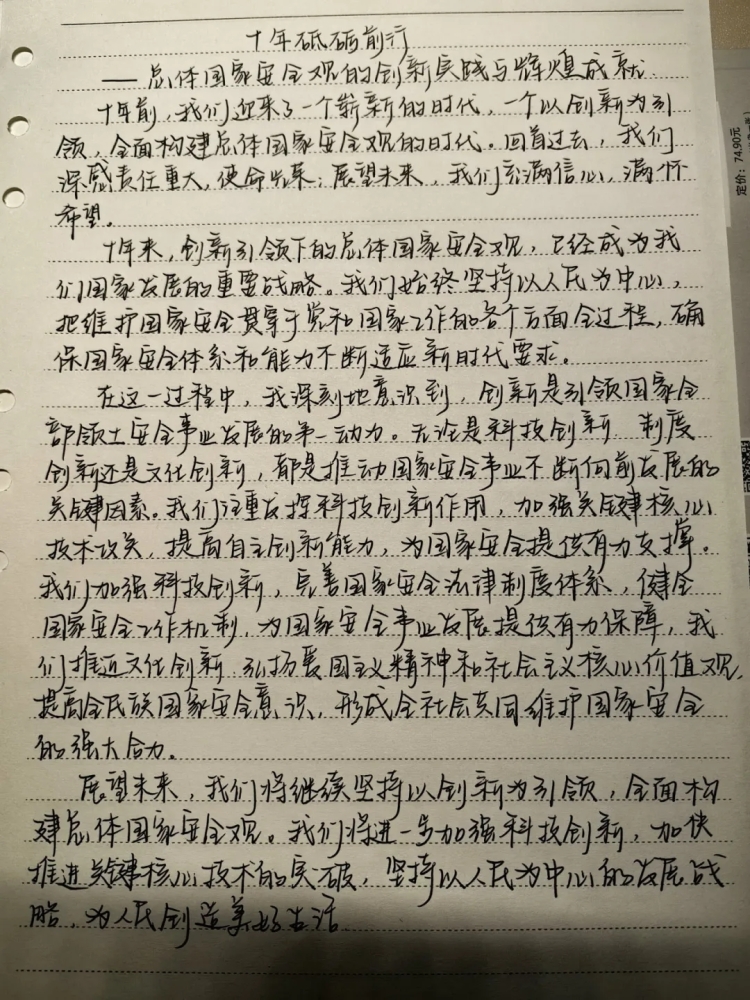 十年砥砺前行
——总体国家安全观的创新实践与辉煌成就
十年前,我们迎来了一个崭新的时代,一个以创新为引
领,全面构建总体国家安全观的时代。回首过去,我们
深感责任重大,使命光荣;展望未来,我们充满信心,满怀
希望。
十年来,创新引领下的总体国家安全观,已经成为我
们国家发展的重要战略。我们始终坚持以人民为中心,
把维护国家安全贯穿于党和国家工作的各个方面全过程,确
保国家安全体系和能力不断适应新时代要求。
在这一过程中,我深刻地意识到,创新是引领国家全
部领土安全事业发展的第一动力。无论是科技创新 制度
创新还是文化创新,都是推动国家安全事业不断向前发展的
关键因素。我们注重发挥科技创新作用,加强关键核心
技术攻关,提高自主创新能力,为国家安全提供有力支撑。
我们加强科技创新,完善国家安全法律制度体系,健全
国家安全工作机制,为国家安全事业发展提供有力保障,我
们推进文化创新 弘扬爱国主义精神和社会主义核心价值观,
提高全民族国家安全意识,形成全社会共同维护国家安全
的强大合力。
展望未来,我们将继续坚持以创新为引领,全面构
建总体国家安全观。我们将进一步加强科技创新,加快
推进关键核心技术的突破,坚持以人民为中心的发展战
略,为人民创造美好生活
定价:74.90元